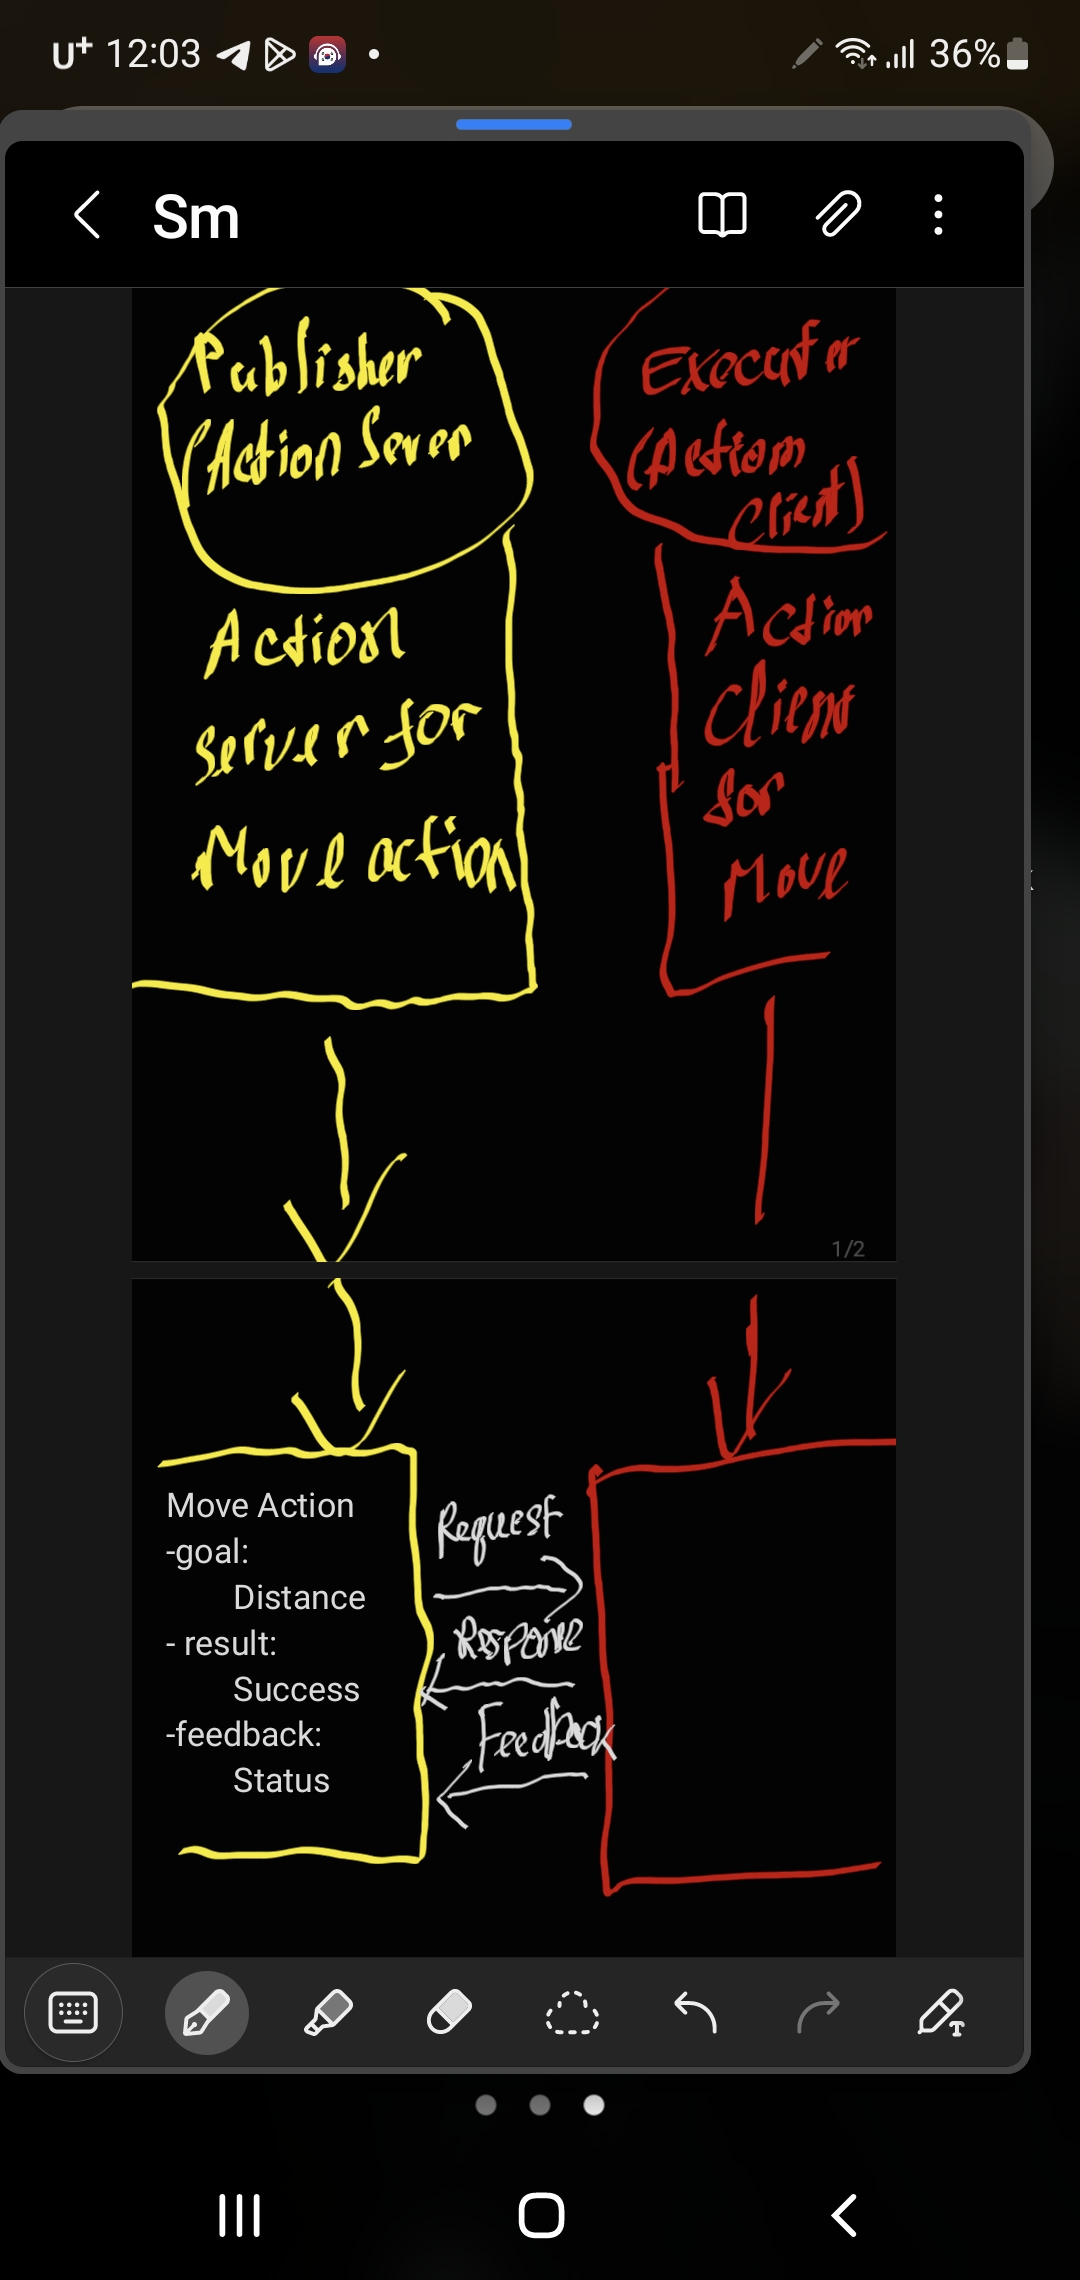 U+ 12:03 36%
Sm
Publisher
(Action Sever
Action
server for
Move action
Executer
(Action
Client)
Action
Client
for
Move
1/2
Move Action
-goal:
Distance
- result:
Success
-feedback:
Status
Request
Response
Feedback